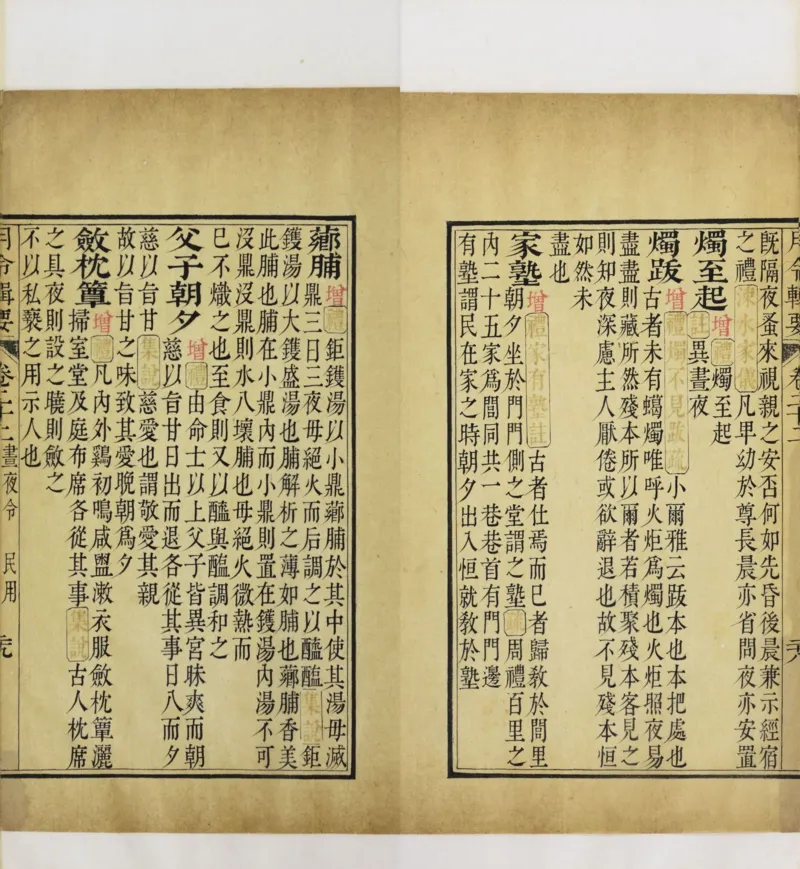 月令輯要 卷二十二
既隔夜蚤來視親之安否何如先昏後晨兼示經宿
之禮涑水家儀凡卑幼於尊長晨亦省問夜亦安置
燭至起 增禮燭至起
註異晝夜
燭跋 增禮燭不見跋疏小爾雅云跋本也本把處也
古者未有蠟燭唯呼火炬爲燭也火炬照夜易
盡盡則藏所然殘本所以爾者若積聚殘本客見之
則知夜深慮主人厭倦或欲辭退也故不見殘本恒
如然未
盡也
家塾 增禮家有塾註古者仕焉而已者歸教於閭里
朝夕坐於門門側之堂謂之塾疏周禮百里之
內二十五家爲閭同共一巷巷首有門門邊
有塾謂民在家之時朝夕出入恒就教於塾
薌脯 增禮鉅鑊湯以小鼎薌脯於其中使其湯毋滅
鼎三日三夜毋絕火而后調之以醯醢集說鉅
鑊湯以大鑊盛湯也脯解析之薄如脯也薌脯香美
此脯也脯在小鼎內而小鼎則置在鑊湯內湯不可
沒鼎沒鼎則水入壞脯也毋絕火微熱而
已不熾之也至食則又以醯與醢調和之
父子朝夕 增禮由命士以上父子皆異宮昧爽而朝
慈以旨甘日出而退各從其事日入而夕
慈以旨甘集說慈愛也謂敬愛其親
故以旨甘之味致其愛晚朝爲夕
斂枕簟 增禮凡內外雞初鳴咸盥漱衣服斂枕簟灑
掃室堂及庭布席各從其事集說古人枕席
之具夜則設之曉則斂之
不以私褻之用示人也
月令輯要 卷二十二 晝夜令 民用